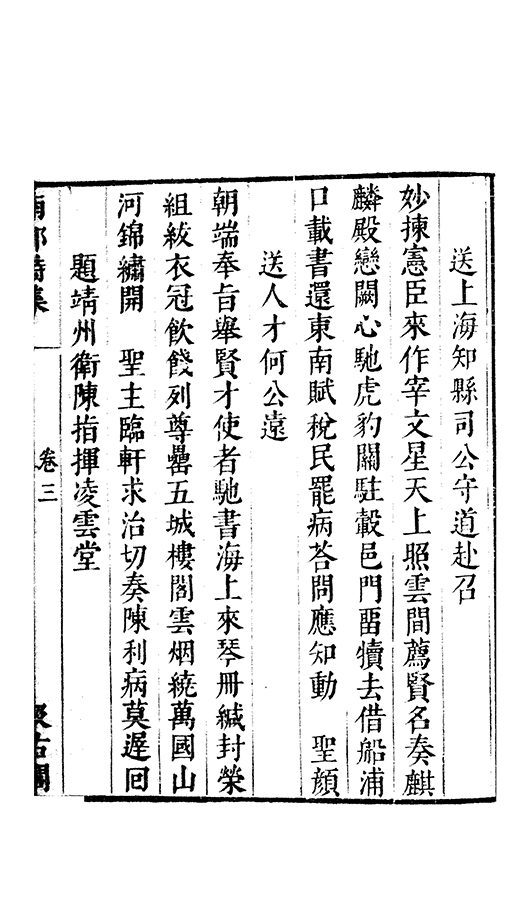 送上海知縣司公守道赴召
妙揀憲臣來作宰文星天上照雲間薦賢名奏麒
麟殿戀闕心馳虎豹關駐轂邑門畱犢去借船浦
口載書還東南賦稅民罷病荅問應知動　聖顔
送人才何公遠
朝端奉旨舉賢才使者馳書海上來琴冊緘封榮
組紱衣冠飲餞列尊罍五城樓閣雲烟繞萬國山
河錦繡開　聖主臨軒求治切奏陳利病莫遲回
題靖州衛陳指揮凌雲堂
卷三